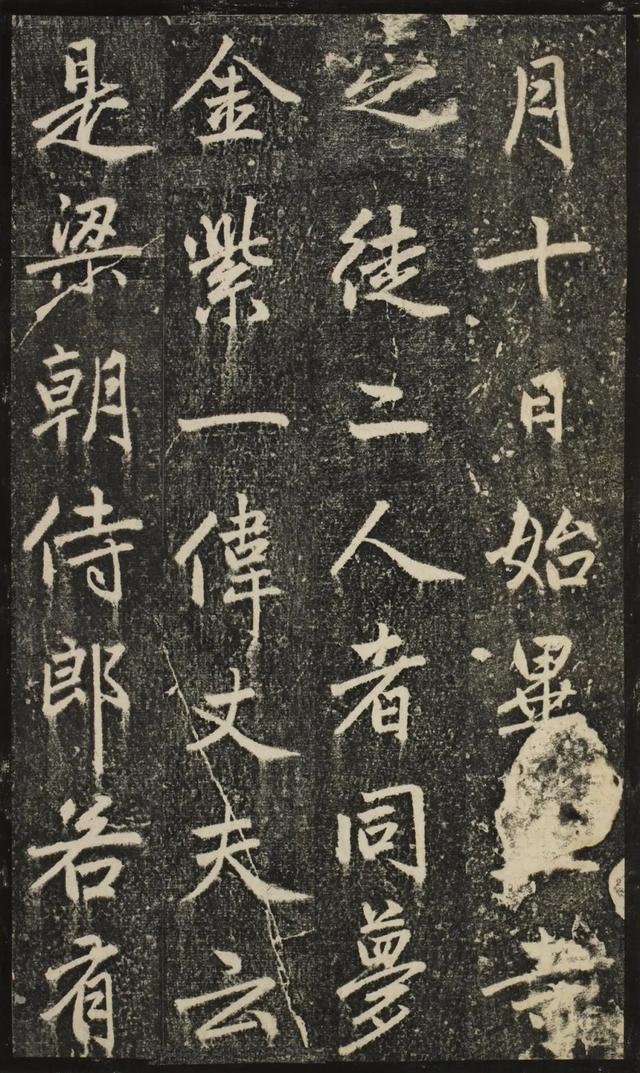 月十日始畢
之徒二人者同夢
金紫一偉丈夫云
是梁朝侍郎若有